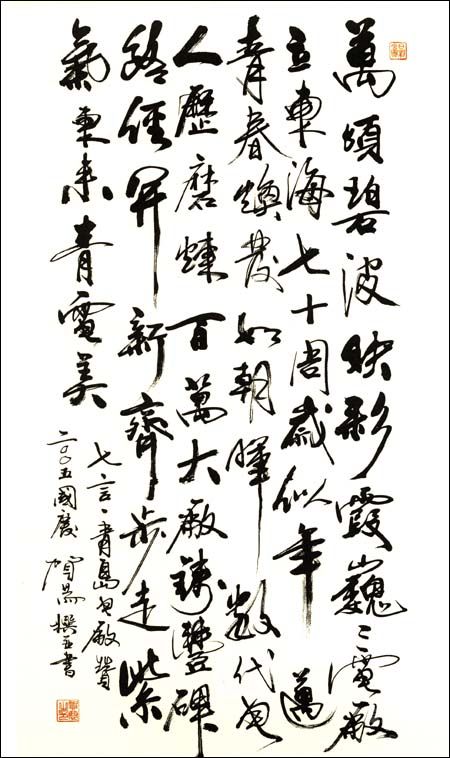 萬頃碧波映彩霞巍々電廠
立東海七十周歲似年邁
青春煥發如朝暉數代電
人歷磨煉百萬大廠鑄豐碑
路徑開新齊步走紫
氣東來青電美
七言·青島電廠贊
二〇〇五國慶 撰并書